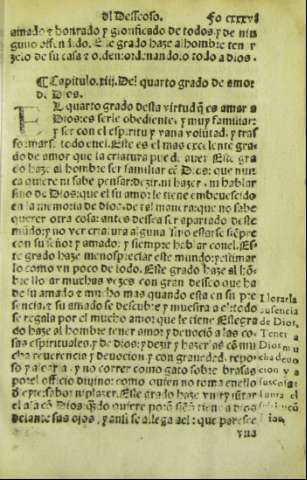 Del Desseoso. Fo cxxxvj
amado z honrado y glorificado de todos, y de nin
guno offendido. Este grado haze al hombre ten
zelo de su casa z o.den: ordenando lo todo a dios.
¶ Capitulo. xiij. Del quarto grado de amor
de Dios.
EL quarto grado desta virtud q̃ es amor a
Dios: es serle obediente, y muy familiar:
y ser con el espiritu y vana volũtad, y tras
formarse todo en el. Este es el mas excelente gra
do de amor que la criatura puede auer. Este gra
do haze al hombre ser familiar cõ Dios: que nun
ca quiere ni sabe pensar: dezir, ni hazer, ni hablar
sino de Dios: que el su amor le tiene embeuescido
en la memoria de Dios: de tal manera: que no sabe
querer otra cosa: antes dessea ser apartado deste
mũdo: y no ver criatura alguna sino estarse siẽpre
con su señor y amado: y siempre hablar con el. Es
te grado haze menospreciar este mundo: y estimar
lo como vn poco de lodo. Este grado haze al hõ-
bre llorar muchas vezes con gran desseo que ha
de su amado z mucho mas quando esta en su pre
sencia: z su amado se descubre y muestra a el: todo
se regala por el mucho amor que le tiene Este gra
do haze al hombre tener amor y deuociõ a las co
sas espirituales, y de dios: y dezir y hazer las cõ mu
cha reuerencia y deuocion, y con grauedad, repo
so y alegria, y no correr como gato sobre brasas
por el officio diuino: como quien no toma en ello
deporte: sabor ni plazer. Este grado haze vnir y jũtar
el alma cõ Dios: q̃ndo quiere
delante sus ojos, y ansi se allega a el: que paresce
vna
Llorar la
ausencia
de Dios,
Tener a
Dios mu
cha deuo
cion